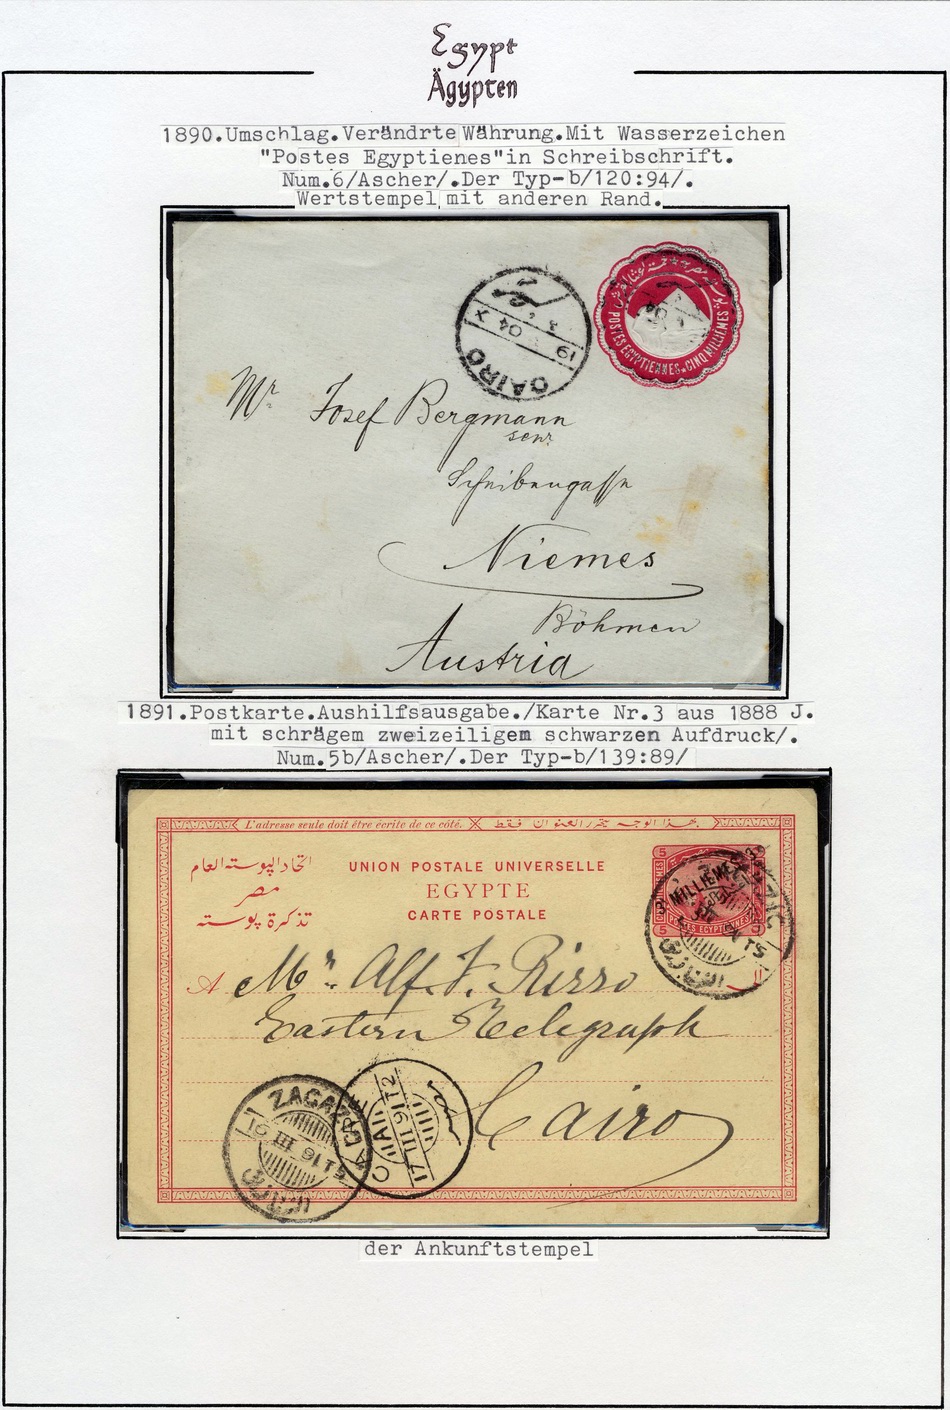 Egypt
Ägypten
1890.Umschlag.Verändrte Währung.Mit Wasserzeichen
"Postes Egyptienes"in Schreibschrift.
Num.6/Ascher/.Der Typ-b/120:94/.
Wertstempel mit anderen Rand.
POSTES EGYPTIENNES ★ CINQ MILLIEMES
19 04 X
CAIRO
Mr Josef Bergmann
senr
Scheibengasse
Niemes
Böhmen
Austria
1891.Postkarte.Aushilfsausgabe./Karte Nr.3 aus 1888 J.
mit schrägem zweizeiligem schwarzen Aufdruck/.
Num.5b/Ascher/.Der Typ-b/139:89/
L'adresse seule doit être écrite de ce côté.
بهذا الوجه يحرر العنوان فقط
اتحاد البوسته العام
مصر
تذكرة بوسته
UNION POSTALE UNIVERSELLE
EGYPTE
CARTE POSTALE
5 5
MILLIEMES
5 5
A Mr Alf. V. Rizzo
Eastern Telegraph
Cairo
ZAGAZ
16 III 91 T
17 III 91 T2
der Ankunftstempel